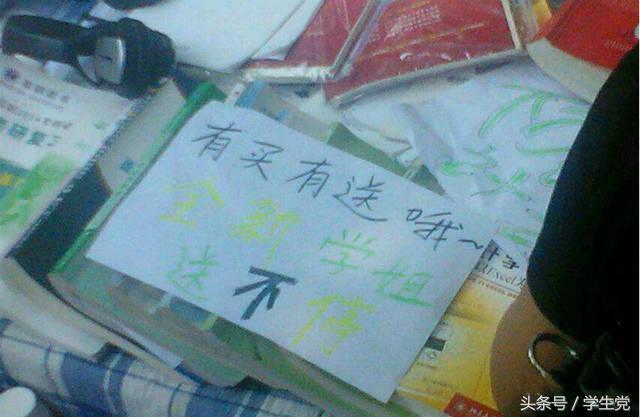 有买有送哦~
全新学姐
送不停
头条号 / 学生党